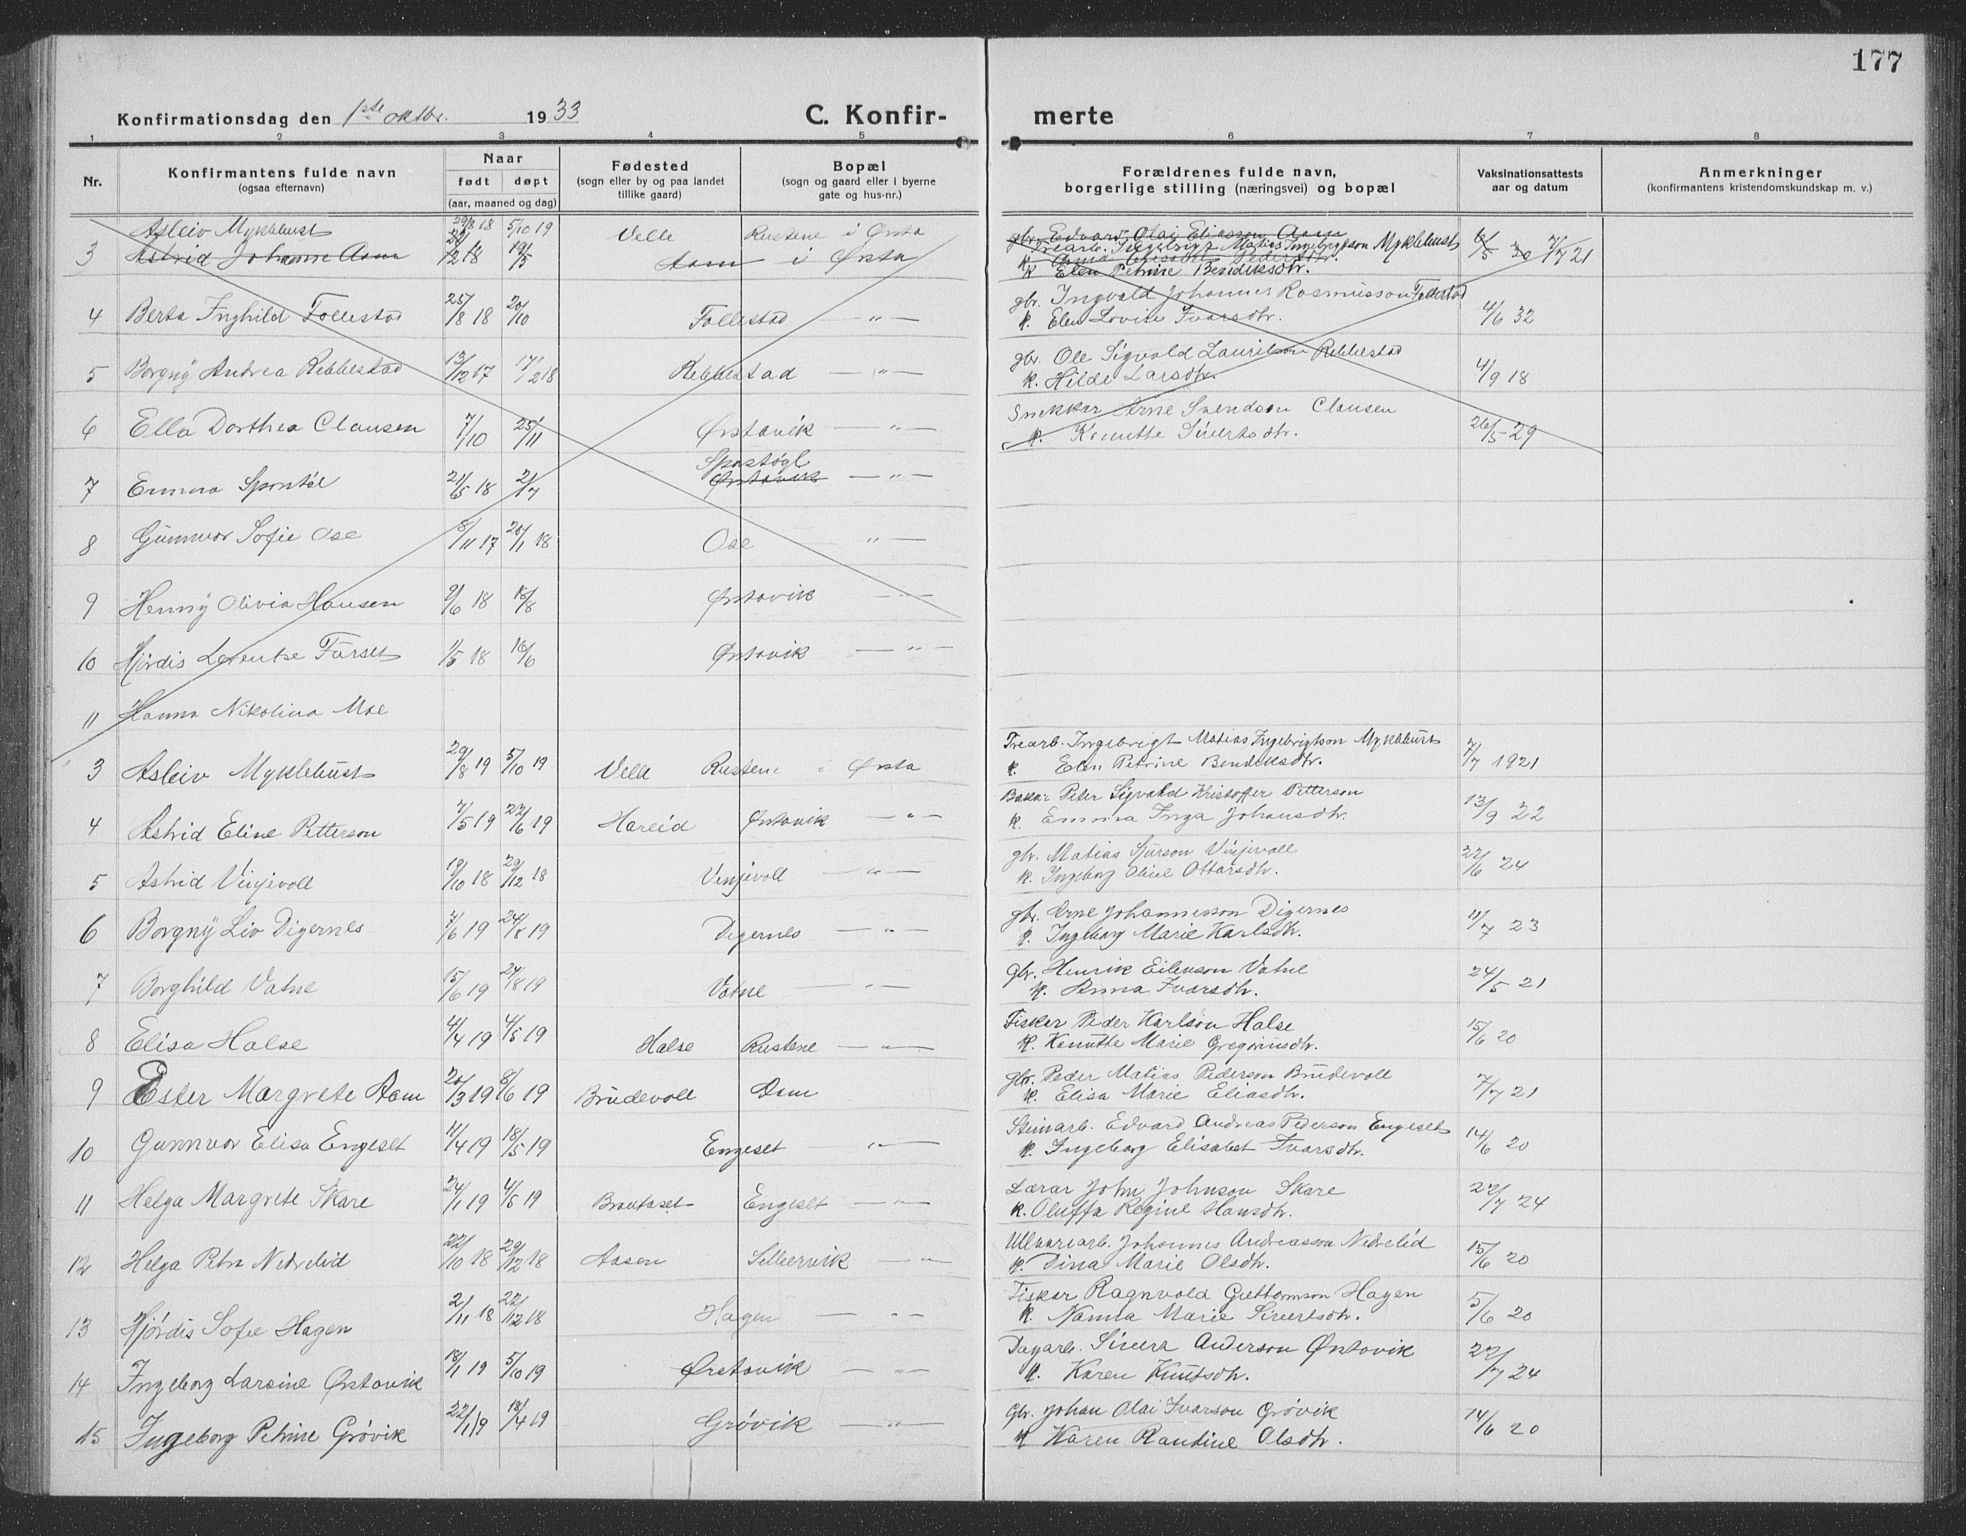 177
Konfirmationsdag den 1ste oktbr. 1933 C. Konfirmerte
1 2 3 4 5 6 7 8
Nr. Konfirmantens fulde navn (ogsaa efternavn) Naar født døpt (aar, maaned og dag) Fødested (sogn eller by og paa landet tillike gaard) Bopæl (sogn og gaard eller i byerne gate og hus-nr.) Forældrenes fulde navn, borgerlige stilling (næringsvei) og bopæl Vaksinationsattests aar og datum Anmerkninger (konfirmantens kristendomskundskap m. v.)
Asleiv Myklebust 29/8 18 5/10 19 Velle Rustene i Ørsta Trearb. Ingebrigt Matias Ingebrigtson Myklebust 7/7 21
k. Elen Petrine Bendiksdtr.
3 Astrid Johanne Aam 12 18 19/5 Aam i Ørsta gbr. Edvard Olai Eliasson Aam
k. Anna Elisabet Pedersdtr.
4 Berta Inghild Follestad 25/8 18 20/10 Follestad — " — gbr. Ingvald Johannes Rasmusson Follestad 4/6 32
k. Elen Lovise Ivarsdtr.
5 Borgny Andrea Rebbestad 13/12 17 17/2 18 Rebbestad — " — gbr. Ole Sigvald Lauritson Rebbestad 4/9 18
k. Hilde Larsdtr.
6 Ella Dorthea Clausen 7/10 25/11 Ørstavik — " — Snekkar Arne Svendson Clausen 26/5 29
k. Knutte Sivertsdtr.
7 Emma Spontøl 21/5 18 2/7 Ørstavik — " —
8 Gunnvor Sofie Ose 8/11 17 20/1 18 Ose — " —
9 Henny Olivia Hansen 9/6 18 18/8 Ørstavik — " —
10 Hjørdis Lorentse Furset 1/5 18 16/6 Ørstavik — " —
11 Hanna Nikolina Moe
3 Asleiv Myklebust 29/8 19 5/10 19 Velle Rustene i Ørsta Trearb. Ingebrigt Matias Ingebrigtson Myklebust 7/7 1921
k. Elen Petrine Bendiksdtr.
4 Astrid Eline Petterson 7/5 19 22/6 19 Hareid Ørstavik — " — Bakar Peter Sigvald Kristoffer Petterson 13/9 22
k. Emma Inga Johansdtr.
5 Astrid Vinjevoll 19/10 18 29/12 18 Vinjevoll — " — gbr. Matias Sjurson Vinjevoll 22/6 24
k. Ingeborg Oline Ottarsdtr.
6 Borgny Liv Digernes 7/6 19 24/8 19 Digernes — " — gbr. Arne Johannesson Digernes 11/7 23
k. Ingeborg Marie Karlsdtr.
7 Borghild Vatne 15/6 19 24/8 19 Vatne — " — gbr. Henrik Eilenson Vatne 24/5 21
k. Anna Ivarsdtr.
8 Elisa Halse 4/4 19 4/5 19 Halse Rustene — " — Fisker Peder Karlson Halse 15/6 20
k. Knutte Marie Gregoriusdtr.
9 Ester Margrete Aam 20/3 19 8/6 19 Brudevoll Aam gbr. Peder Matias Pederson Brudevoll 7/7 21
k. Elisa Marie Eliasdtr.
10 Gunnvor Elisa Engeset 11/4 19 18/5 19 Engeset — " — Steinarb. Edvard Andreas Pederson Engeset 14/6 20
k. Ingeborg Elisabet Ivarsdtr.
11 Helga Margrete Skare 24/1 19 4/5 19 Brautaset Engeset — " — Lærar John Johnson Skare 22/7 24
k. Oluffa Regine Hansdtr.
12 Helga Petra Nedrelid 22/10 18 29/12 18 Aasen Sellervik — " — Ullvarearb. Johannes Andreasson Nedrelid 15/6 20
k. Dina Marie Olsdtr.
13 Hjørdis Sofie Hagen 2/11 18 22/12 18 Hagen — " — Fisker Ragnvald Guttormson Hagen 5/6 20
k. Nanna Marie Sivertsdtr.
14 Ingeborg Larsine Ørstavik 18/1 19 5/10 19 Ørstavik — " — Dagarb. Sivert Anderson Ørstavik 22/7 24
k. Karen Knutsdtr.
15 Ingeborg Petrine Grøvik 22/1 19 13/4 19 Grøvik — " — Gbr. Johan Olai Ivarson Grøvik 14/6 20
k Karen Rantine Olsdtr.